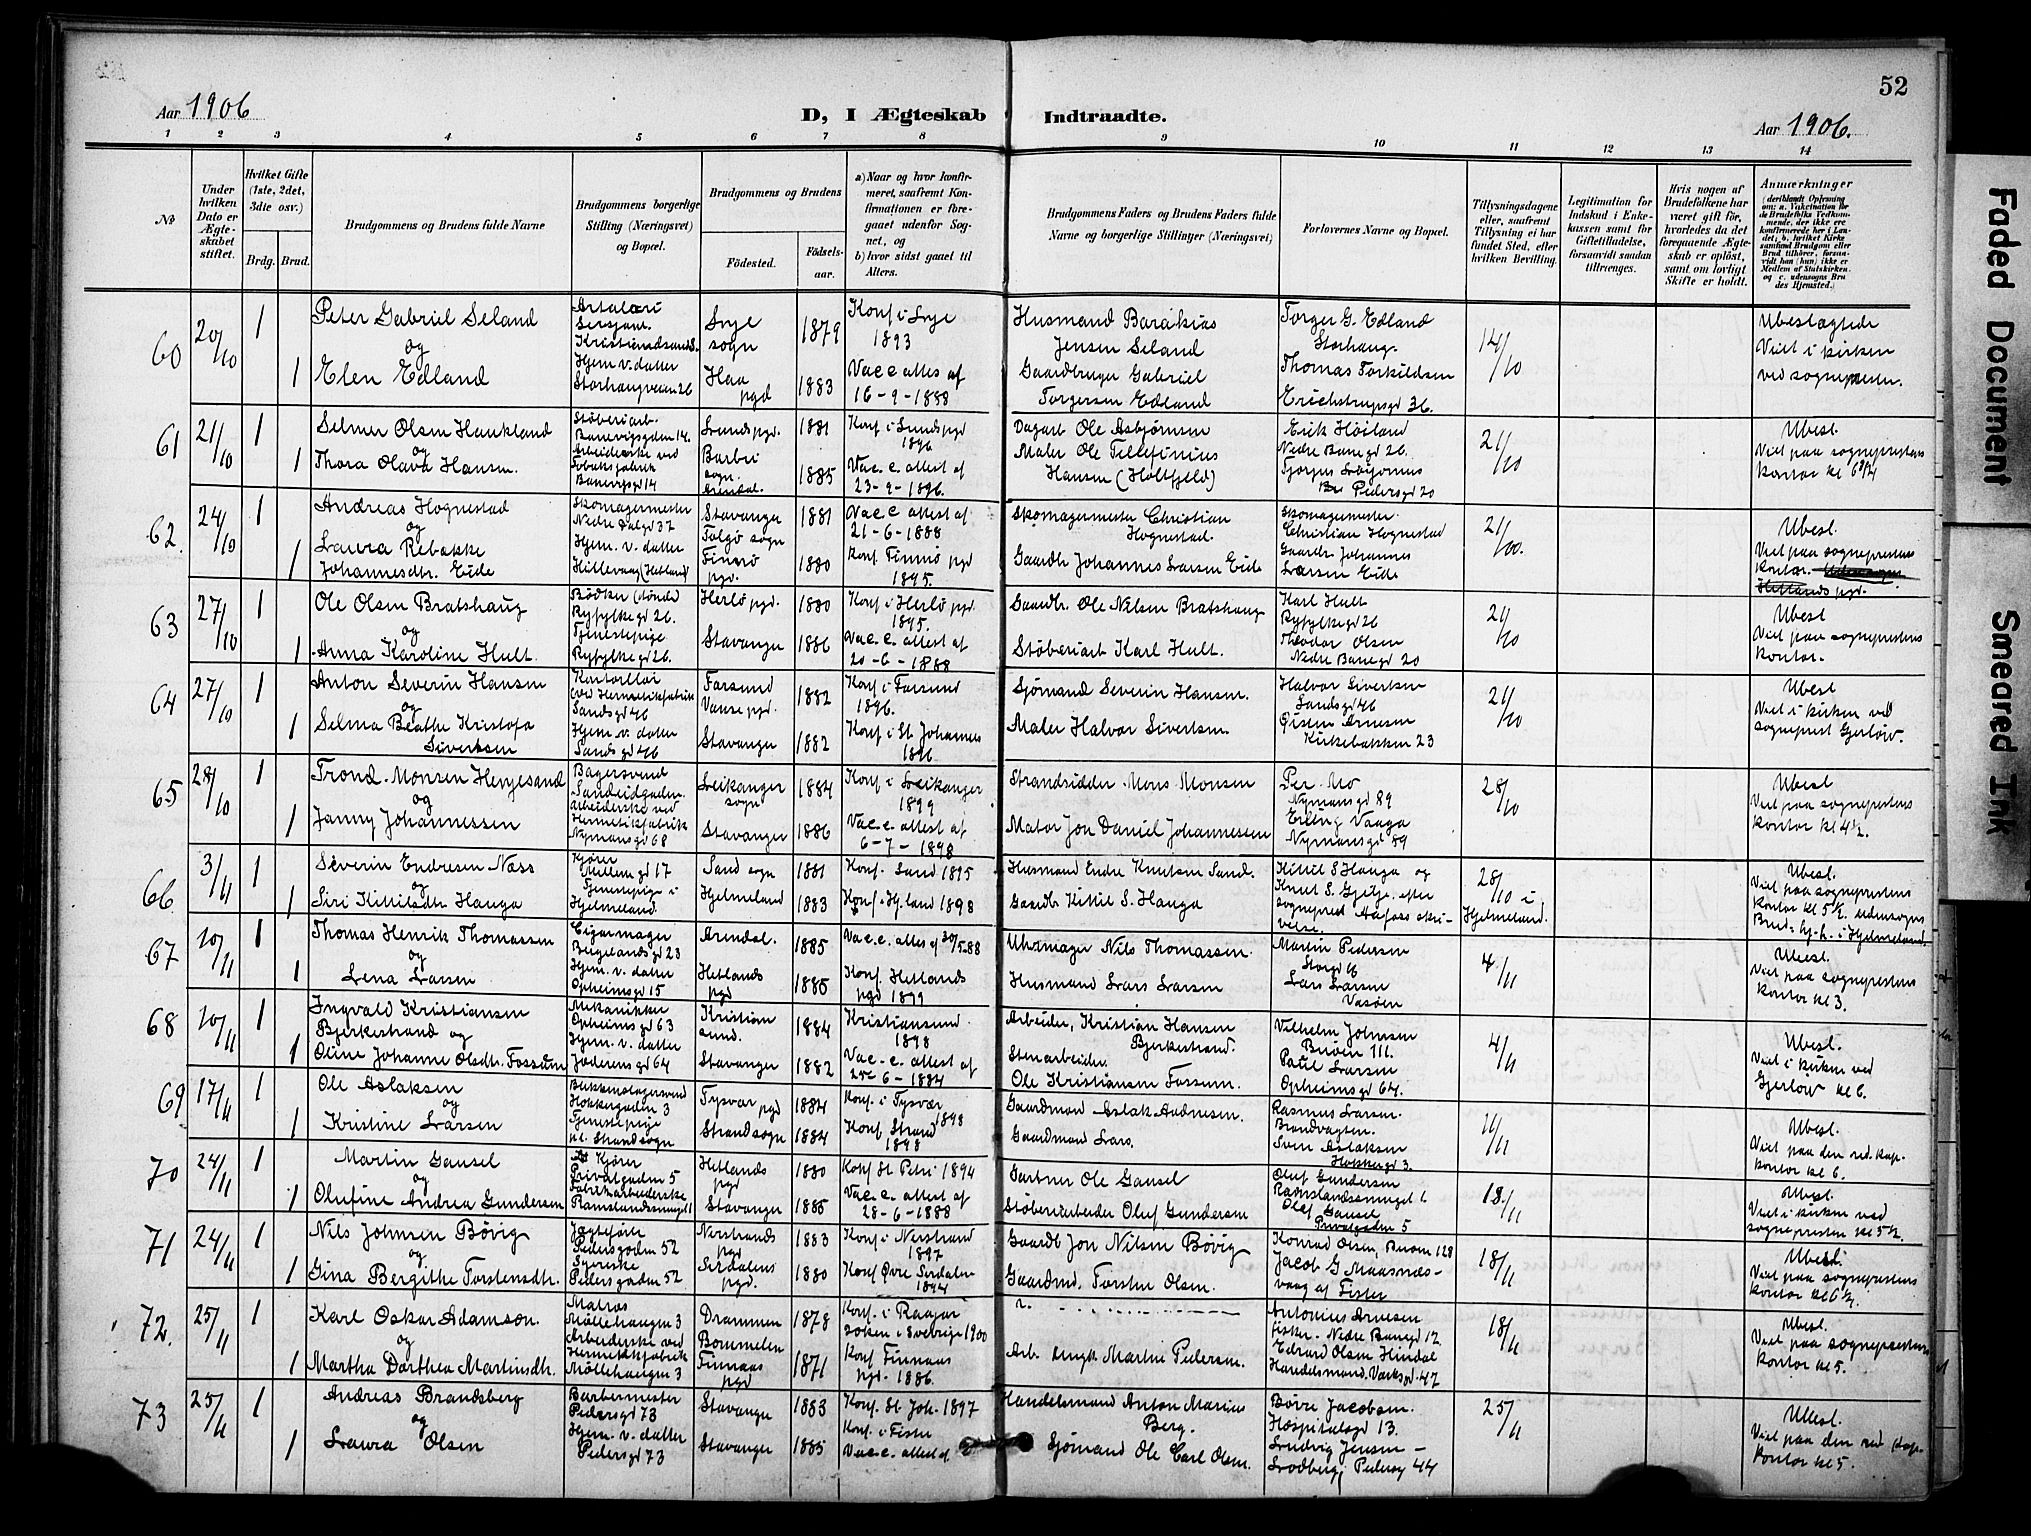 52
Aar 1906
D, I Ægteskab Indtraadte.
Aar 1906.
1 2 3 4 5 6 7 8 9 10 11 12 13 14
No
Under hvilken Dato er Ægteskabet stiftet.
Hvilket Gifte (1ste, 2det, 3die osv.)
Brdg. Brud.
Brudgommens og Brudens fulde Navne
Brudgommens borgerlige Stilling (Næringsvei) og Bopæl.
Brudgommens og Brudens
Födested.
Födselsaar.
a) Naar og hvor konfirmeret, saafremt Konfirmationen er foregaaet udenfor Sognet, og
b) hvor sidst gaaet til Alters.
Brudgommens Faders og Brudens Faders fulde Navne og borgerlige Stillinger (Næringsvei)
Forlovernes Navne og Bopæl.
Tillysningsdagene eller, saafremt Tillysning ei har fundet Sted, efter hvilken Bevilling.
Legitimation for Indskud i Enkekassen samt for Giftetilladelse, forsaavidt saadan tiltrænges.
Hvis nogen af Brudefolkene har været gift för, hvorledes da det foregaaende Ægteskab er oplöst, samt om lovligt Skifte er holdt.
Anmærkninger
60 20/10 1 Peter Gabriel Seland Kristiandsand S. Sogn 1879 Konf i 1893 Husmand Barakias Jensen Seland Torger G. Edland Storhaug. 14/10 Ubeslægtede
og
1 Elen Edland Hjem. v. datter Storhaugveien 26 Haa pgd 1883 Vacc attes af 16-9-1888 Gaardbruger Gabriel Torgersen Edland Thomas Torkildsen Erichstrupsgd 36. Viet i kirken ved sognepresten.
61 21/10 1 Selmer Olsen Haukland Støberiarb. Banevigsgaden 14. Lunds pgd. 1881 Konf i Lunds pgd 1896 Dagarb Ole Asbjørnsen Erik Höiland Nedre Banegd 26. 21/10 Ubesl.
og
1 Thora Olava Hansen. Arbeiderske ved Banevigsgd 14 Barbu sogn. Arendal. 1885 Vac. c. attest af 23-9-1896. Maler Tellefinius Hansen (Holtfjeld) Pedersgd 20 Viet paa sogneprestens kontor kl 6 3/4
62. 24/10 1 Andreas Hognestad Skomagermester Nedre Dalgd 37 Stavanger 1881 Vac C attest af 21-6-1888 Skomagermester Christian Hognestad. Skomagermester Christian Hognestad 21/10. Ubesl.
og
1 Laura Rebekke Johannesdtr. Eide Hjem. v. datter Hillevaag (Hetland) Talgö sogn Finnö pgd. 1880 Konf Finnö pgd 1895. Gaardbr Johannes Larsen Eide Gaardbr Johannes Larsen Eide Viet paa sogneprestens kontor. Hetlands pgd.
63 27/10 1 Ole Olsen Bratshaug Bödker (tønde) Ryfylkegd 26. Herlö pgd. 1880 Konf i Herlö pgd 1895. Gaardbr. Ole Nilsen Bratshaug Karl Hult Ryfylkegd 26 21/10 Ubesl
og
1 Anna Karoline Hult. Tjenestepige Ryfylkegd 26. Stavanger 1886 Vac. c. attest af 20-6-1888 Støberiarb Karl Hult. Theodor Olsen Nedre Banegd 20 Viet paa sogneprestens kontor.
64 27/10 1 Anton Severin Hansen Sandsgd 46 Farsund Vanse pgd. 1882 Konf i Farsund 1896. Sjømand Severin Hansen. Halvor Sivertsen Sandsgd 46 21/10 Ubesl
og
1 Selma Beathe Kristofa Sivertsen Hjem v. datter Sandsgd 46 Stavanger 1882 Konf i St Johannes 1896 Maler Halvor Sivertsen. Kirkebakken 23 Viet i kirken ved sogneprest Gjerlöw.
65 28/10 1 Trond Monsen Henjesand Bagersvend Sandeidgaden. Leikanger sogn 1884 Konf i Leikanger 1899 Strandsidder Mons Monsen Per Mo Nymansgd 89 28/10 Ubesl
og
1 Janny Johannessen Arbeiderske ved Hermetikfabrik Nymansgd 68 Stavanger 1886 Vac. c. attest af 6-7-1898 Mator Jon Daniel Johannessen Erling Vaaga Nymansgd 89 Viet paa sogneprestens kontor kl 4½.
66. 3/11 1 Severin Endresen Næss Kjører gd 17 Sand sogn 1881 Konf. Sand 1895 Husmand Endre Knutsen Sand. Kittil S Hauga og 28/10 i Hjelmeland. Ubesl.
og
1 Siri Kittilsdtr Hauga Tjenestepige i Hjelmeland. Hjelmeland 1883 Konf i Hj.land 1898 Gaardb Kittil S. Hauga Knut S. Gjelje. efter Viet paa sogneprestens kontor kl 5½. udensogns Brud. i Hjelmeland.
67 10/11 1 Thomas Henrik Thomassen Cigarmager Bergelandsgd 23 Arendal. 1885 Vac. c. attes af 30/5-88 Uhrmager Nils Thomassen. Martin Pedersen 4/11 Ubesl.
og
1 Lena Larsen Hjem. v. datter Opheimsgd 15 Hetlands pgd 1885 Konf Hetlands pgd 1899 Husmand Lars Larsen Lars Larsen Vasöen Viet paa sogneprestens kontor kl 3.
68 10/11 1 Ingvald Kristiansen Bjerkestrand og Mekaniker Opheimsgd 63 Kristiansund. 1884 Kristiansund. 1898 Arbeider, Kristian Hansen Bjerkestrand. Vilhelm Johnsen Bruen 111. 4/11 Ubesl.
1 Oline Johanne Olsdtr. Fossum Hjem. v. datter Jæderensgd 64 Stavanger 1882 Vac. c. attest af 25-6-1884 Stenarbeider Ole Kristiansen Fossum. Paul Larsen Opheimsgd 64. Viet i kirken ved Gjerlöw kl 6.
69 17/11 1 Ole Aslaksen Hökkergaden 3 Tysvær pgd 1884 Konf. i Tysvær 1898 Gaardmand Aslak Aadnesen. Rasmus Larsen. Brandvagten. 11/11 Ubesl.
og
1 Kristine Larsen Tjenestepige Strand sogn Strand sogn 1884 Konf Strand 1898 Gaardmand Lars. Sven Aslaksen Hökkergd 3. Viet paa den red. kap. kontor kl 6.
70 24/11 1 Martin Gausel Kjører Privatgaden 5 Hetlands pgd 1880 Konf St Petri 1894 Gartner Ole Gausel Oluf Gundersen 18/11 Ubesl.
og
1 Olufine Andrea Gundersen Fabrikarbeiderske Stavanger 1885 Vac. c. attest af 28-6-1888 Støberiarbeider Oluf Gundersen Olef Gausel Privatgaden 5 Viet i kirken ved sognepresten kl 5½.
71 24/11 1 Nils Johnsen Bövig Jagtefører Pedersgaden 52 Nerstrands pgd 1883 Konf i Nerstrand 1897 Gaardb Jon Nilsen Bövig Konrad Olsen, Bruen 128 18/11 Ubesl.
og
1 Gina Bergithe Torstensdtr. Syerske Pedersgaden 52 Sirdalens pgd. 1880 Konf Øvre Sirdalen 1894 Gaardmd. Torsten Olsen. Jacob G Maasnæsvaag af Fister Viet paa sogneprestens kontor kl 6½.
72. 25/11 1 Karl Oskar Adamson. Matros Möllehaugen 3 Drammen 1878 Konf. i soken i Sverige 1900 Antonius Arnesen fisker. Nedre Banegd 12 18/11 Ubesl.
og
1 Martha Dorthea Martinsdtr. Arbeiderske ved Hermetikfabrik Möllehaugen 3 Bömmelen Finnaas pgd 1871 Konf Finnaas pgd. 1886. Arb. Martin Pedersen. Edvard Olsen Hindal Handelsmand, Verksgd. 47 Viet paa sogneprestens kontor kl 5.
73 25/11 1 Andreas Brandsberg Barbermester Pedersgd 73 Stavanger 1883 Konf. St Joh. 1897 Handelsmand Anton Marius Berg. Børre Jacobsen. Hospitalsgd 13. 25/11 Ubesl.
og
1 Laura Olsen Hjem. v. datter Pedersgd 73 Stavanger 1885 Konf. i Fister Vac. c. attest af Sjømand Ole Carl Olsen. Ludvig Jensen - Lodberg, Pedersg 44 Viet paa den red kap. kontor kl 5.
Faded Document
Smeared Ink